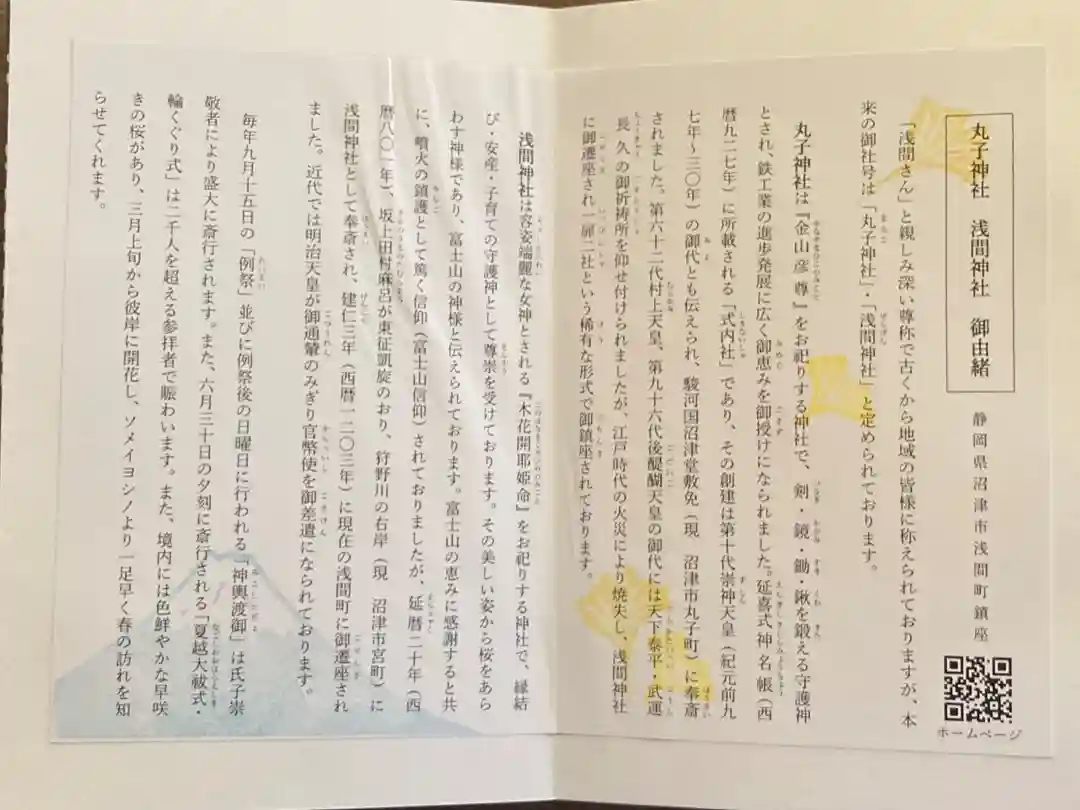 丸子神社 浅間神社 御由緒
静岡県沼津市浅間町鎮座
ホームページ
「浅間さん」と親しみ深い尊称で古くから地域の皆様に称えられておりますが、本
来の御社号は「丸子神社」・「浅間神社」と定められております。
丸子神社は『金山彦尊』をお祀りする神社で、剣・鏡・鋤・鍬を鍛える守護神
とされ、鉄工業の進歩発展に広く御恵みを御授けになられました。延喜式神名帳(西
暦九二七年)に所載される「式内社」であり、その創建は第十代崇神天皇(紀元前九
七年～三〇年)の御代とも伝えられ、駿河国沼津堂敷免(現 沼津市丸子町)に奉斎
されました。第六十二代村上天皇、第九十六代後醍醐天皇の御代には天下泰平・武運
長久の御祈祷所を仰せ付けられましたが、江戸時代の火災により焼失し、浅間神社
に御遷座され一扉二社という稀有な形式で御鎮座されております。
浅間神社は容姿端麗な女神とされる『木花開耶姫命』をお祀りする神社で、縁結
び・安産・子育ての守護神として尊崇を受けております。その美しい姿から桜をあら
わす神様であり、富士山の神様と伝えられております。富士山の恵みに感謝すると共
に、噴火の鎮護として篤く信仰(富士山信仰)されておりましたが、延暦二十年(西
暦八〇一年)、坂上田村麻呂が東征凱旋のおり、狩野川の右岸(現 沼津市宮町)に
浅間神社として奉斎され、建仁三年(西暦一二〇三年)に現在の浅間町に御遷座され
ました。近代では明治天皇が御通輦のみぎり官幣使を御差遣になられております。
毎年九月十五日の「例祭」並びに例祭後の日曜日に行われる「神輿渡御」は氏子崇
敬者により盛大に斎行されます。また、六月三十日の夕刻に斎行される「夏越大祓式・
輪くぐり式」は二千人を超える参拝者で賑わいます。また、境内には色鮮やかな早咲
きの桜があり、三月上旬から彼岸に開花し、ソメイヨシノより一足早く春の訪れを知
らせてくれます。